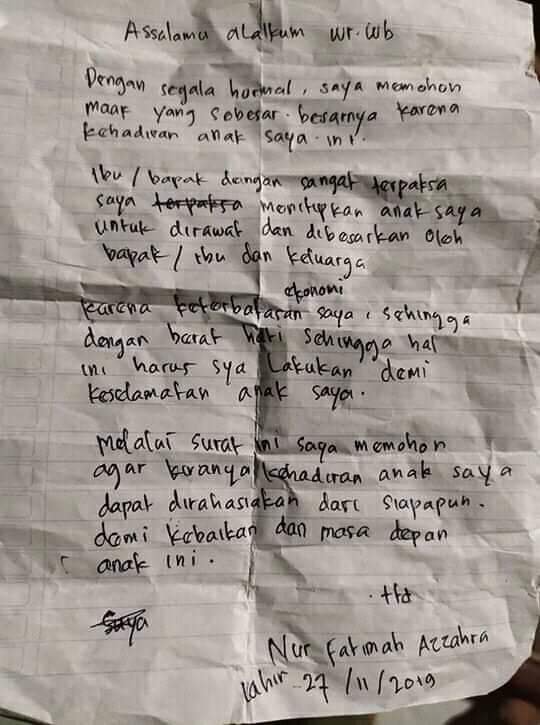 Assalamu alaikum wr.wb
Dengan segala hormat, saya memohon
maaf yang sebesar-besarnya karena
kehadiran anak saya ini.
Ibu/bapak dengan sangat terpaksa
saya terpaksa menitipkan anak saya
untuk dirawat dan dibesarkan oleh
bapak/ibu dan keluarga
ekonomi
karena keterbatasan saya, sehingga
dengan berat hati sehingga hal
ini harus sya lakukan demi
keselamatan anak saya.
Melalui surat ini saya memohon
agar kiranya kehadiran anak saya
dapat dirahasiakan dari siapapun.
demi kebaikan dan masa depan
anak ini.
ttd
Saya
Nur Fatimah Azzahra
lahir 27/11/2019